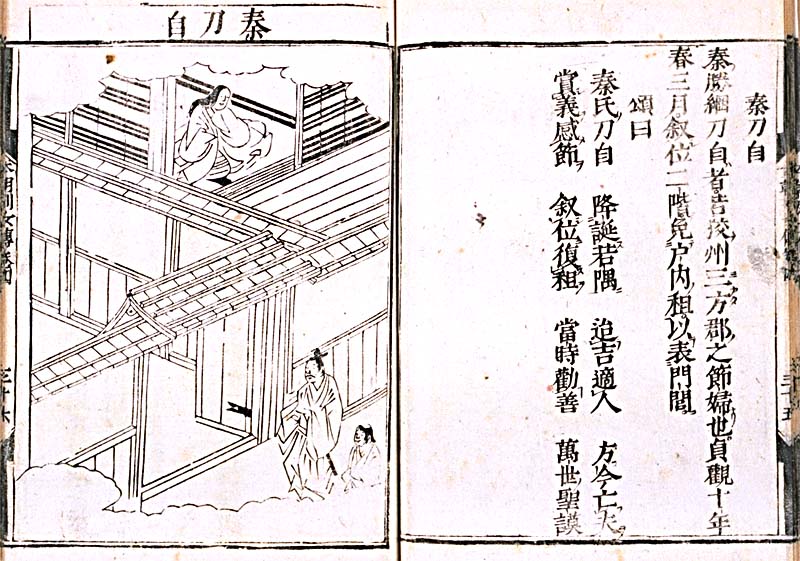 秦刀自
秦勝綱刀自者若狹州三方郡之節婦也貞觀十年
春三月叙位二階免户内租以表門閭
頌曰
秦氏刀自 降誕若隅 迨吉適人 方今亡夫
賞義感節 叙位復租 當時勸善 萬世聖謨
秦刀自
本朝列女傳卷四
三十六